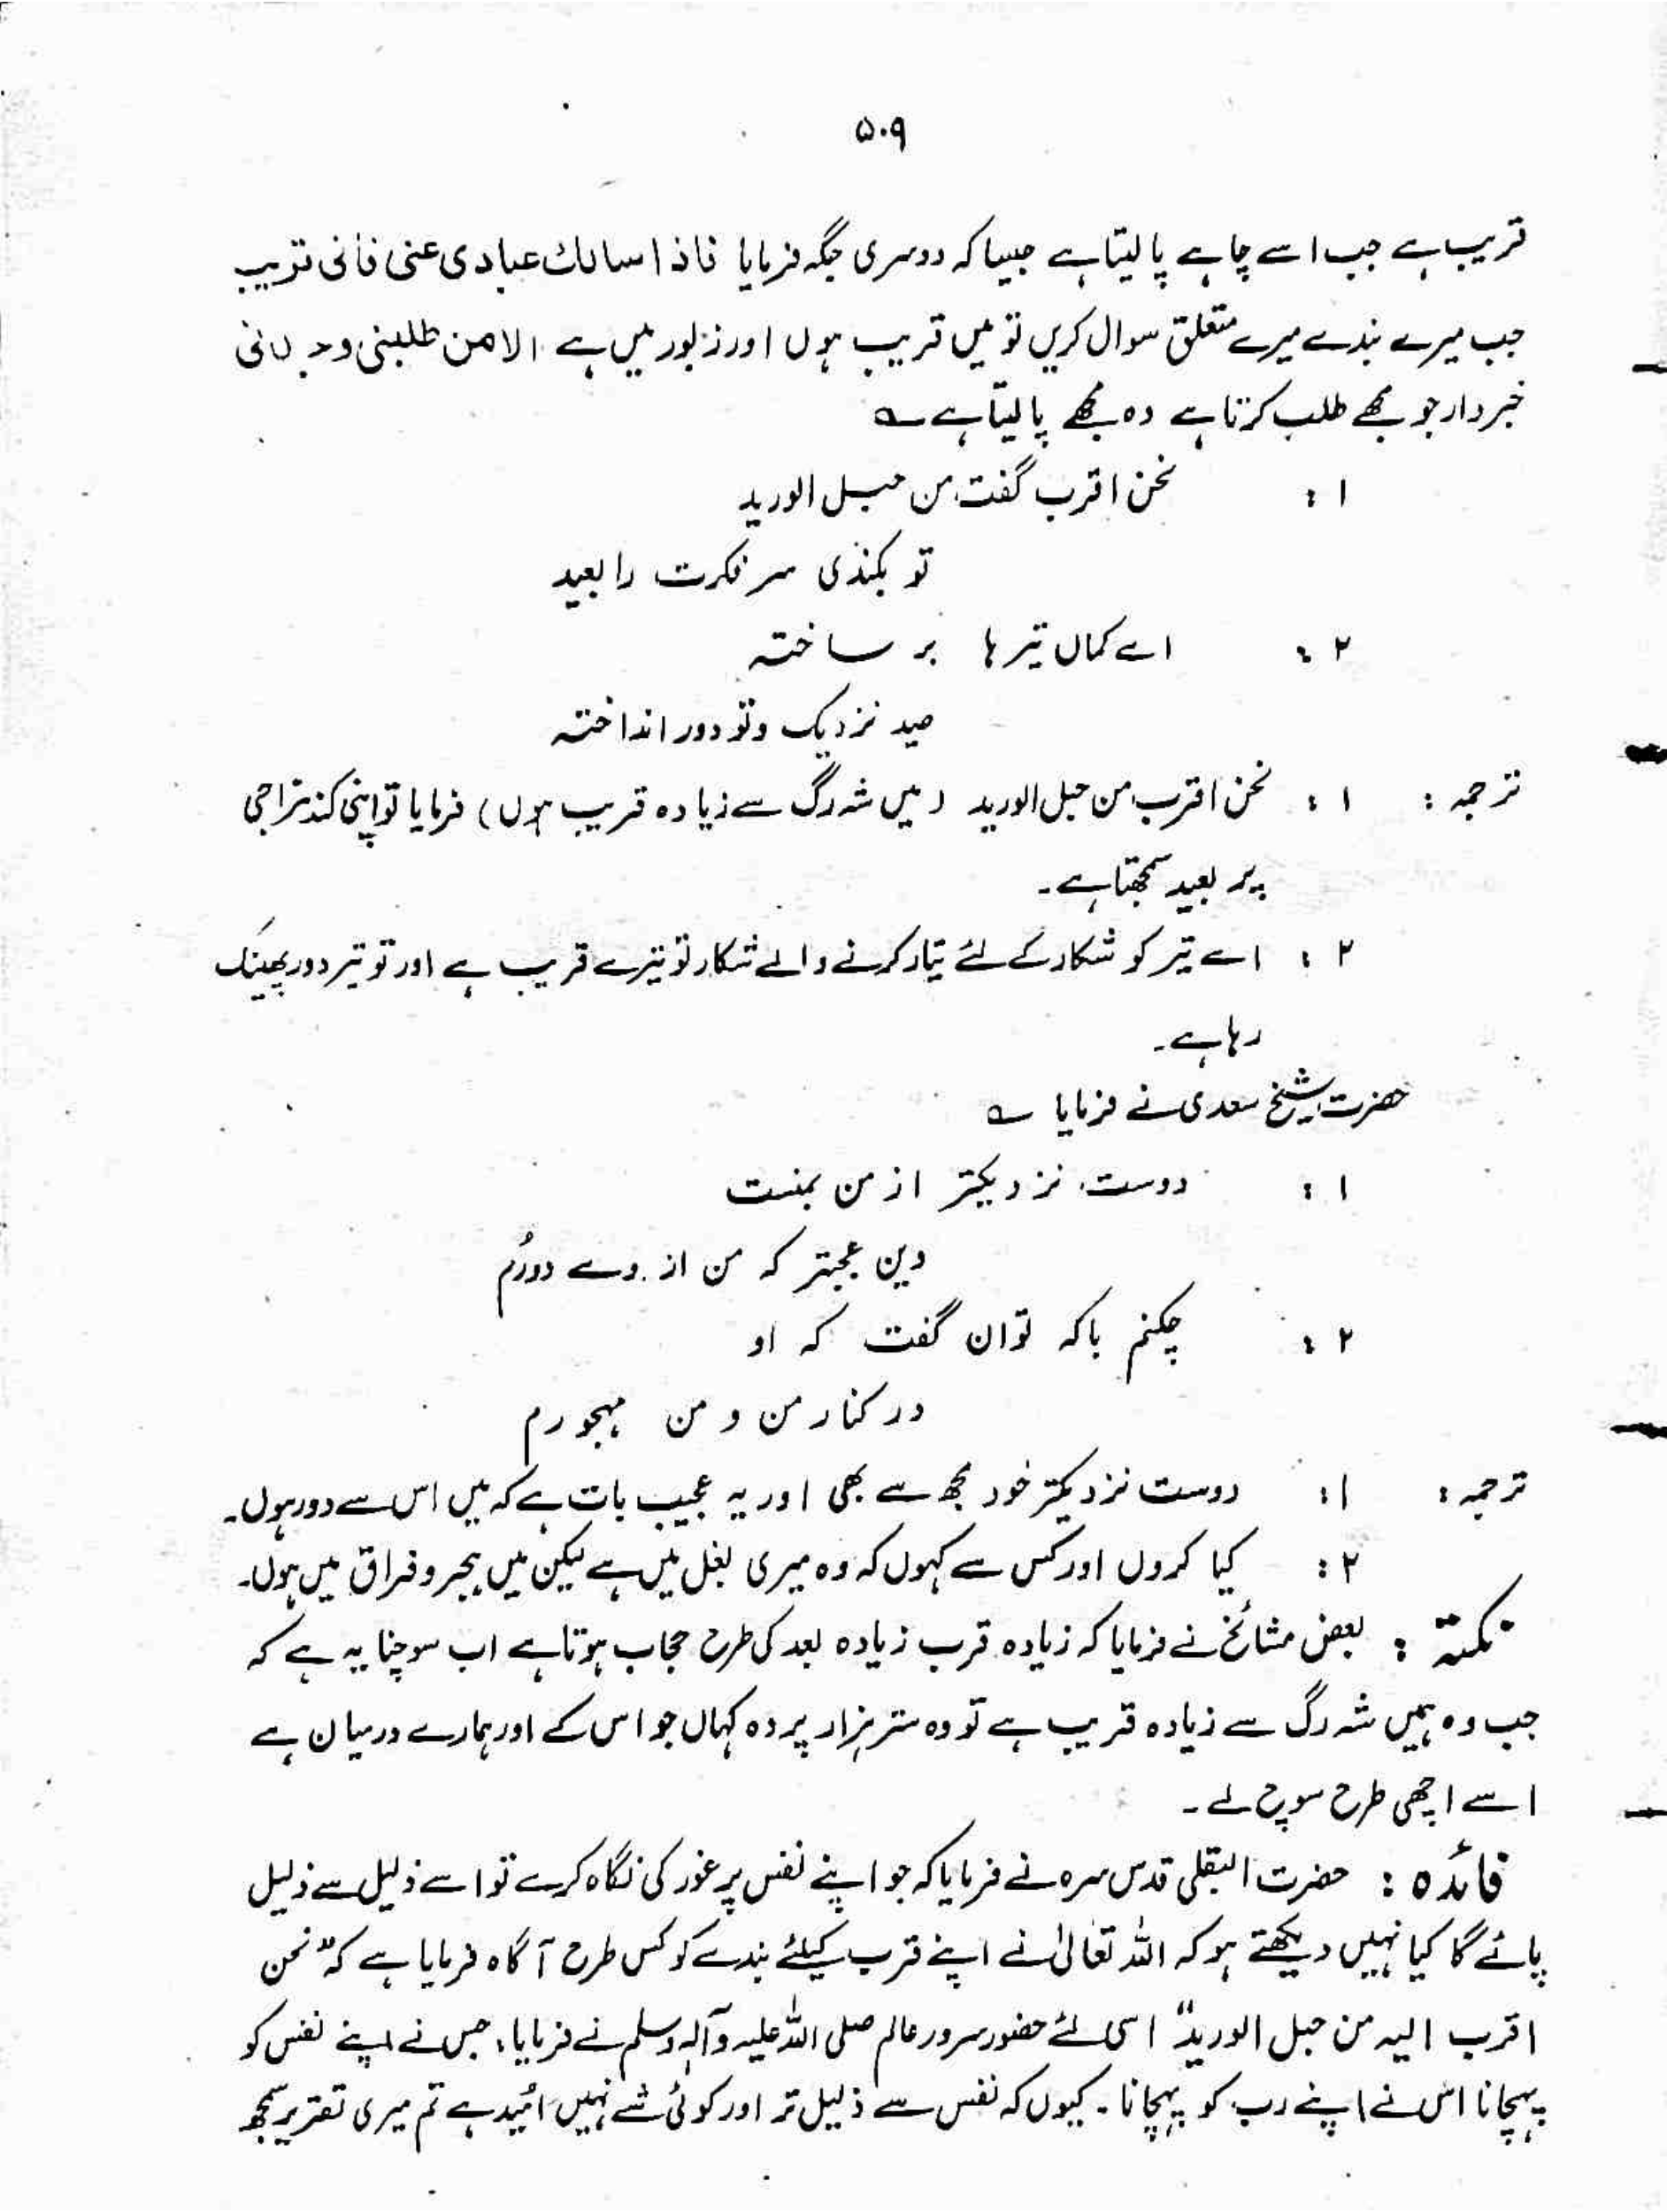 ۵۰۹
قریب ہے جب اسے چاہے پا لیتا ہے جیسا کہ دوسری جگہ فرمایا فاذا سالک عبادی عنی فانی قریب
جب میرے بندے میرے متعلق سوال کریں تو میں قریب ہوں اور زبور میں ہے الامن طلبنی وجدنی
خبردار جو مجھے طلب کرتا ہے وہ مجھے پا لیتا ہے ؎
۱ : نحن اقرب گفت من حبل الورید
تو بکندی سر فکرت را بعید
۲ : اے کمان تیر ہا بر ساختہ
صید نزدیک و تو دور انداختہ
ترجمہ : ۱ : نحن اقرب من حبل الورید ( میں شہ رگ سے زیادہ قریب ہوں ) فرمایا تو اپنی کند مزاجی
پر بعید سمجھتا ہے ۔
۲ : اے تیر کو شکار کے لئے تیار کرنے والے شکار تو تیرے قریب ہے اور تو تیر دور پھینک
رہا ہے ۔
حضرت شیخ سعدی نے فرمایا ؎
۱ : دوست نزدیکتر از من بمنست
وین عجبتر کہ من از وے دورُم
۲ : چکنم باکہ توان گفت کہ او
در کنار من و من مہجورم
ترجمہ : ۱ : دوست نزدیکتر خود مجھ سے بھی اور یہ عجیب بات ہے کہ میں اس سے دور ہوں ۔
۲ : کیا کروں اور کس سے کہوں کہ وہ میری بغل میں ہے لیکن میں ہجر و فراق میں ہوں ۔
نکتہ : بعض مشائخ نے فرمایا کہ زیادہ قرب زیادہ بعد کی طرح حجاب ہوتا ہے اب سوچنا یہ ہے کہ
جب وہ ہمیں شہ رگ سے زیادہ قریب ہے تو وہ ستر ہزار پردہ کہاں جو اس کے اور ہمارے درمیان ہے
اسے اچھی طرح سوچ لے ۔
فائدہ : حضرت البقلی قدس سرہ نے فرمایا کہ جو اپنے نفس پر غور کی نگاہ کرے تو اسے ذلیل سے ذلیل
پائے گا کیا نہیں دیکھتے ہو کہ اللہ تعالیٰ نے اپنے قرب کیلئے بندے کو کس طرح آگاہ فرمایا ہے کہ ”نحن
اقرب الیہ من حبل الورید“ اسی لئے حضور سرور عالم صلی اللہ علیہ وآلہ وسلم نے فرمایا، جس نے اپنے نفس کو
پہچانا اس نے اپنے رب کو پہچانا ۔ کیوں کہ نفس سے ذلیل تر اور کوئی شے نہیں اُمید ہے تم میری تقریر سمجھ